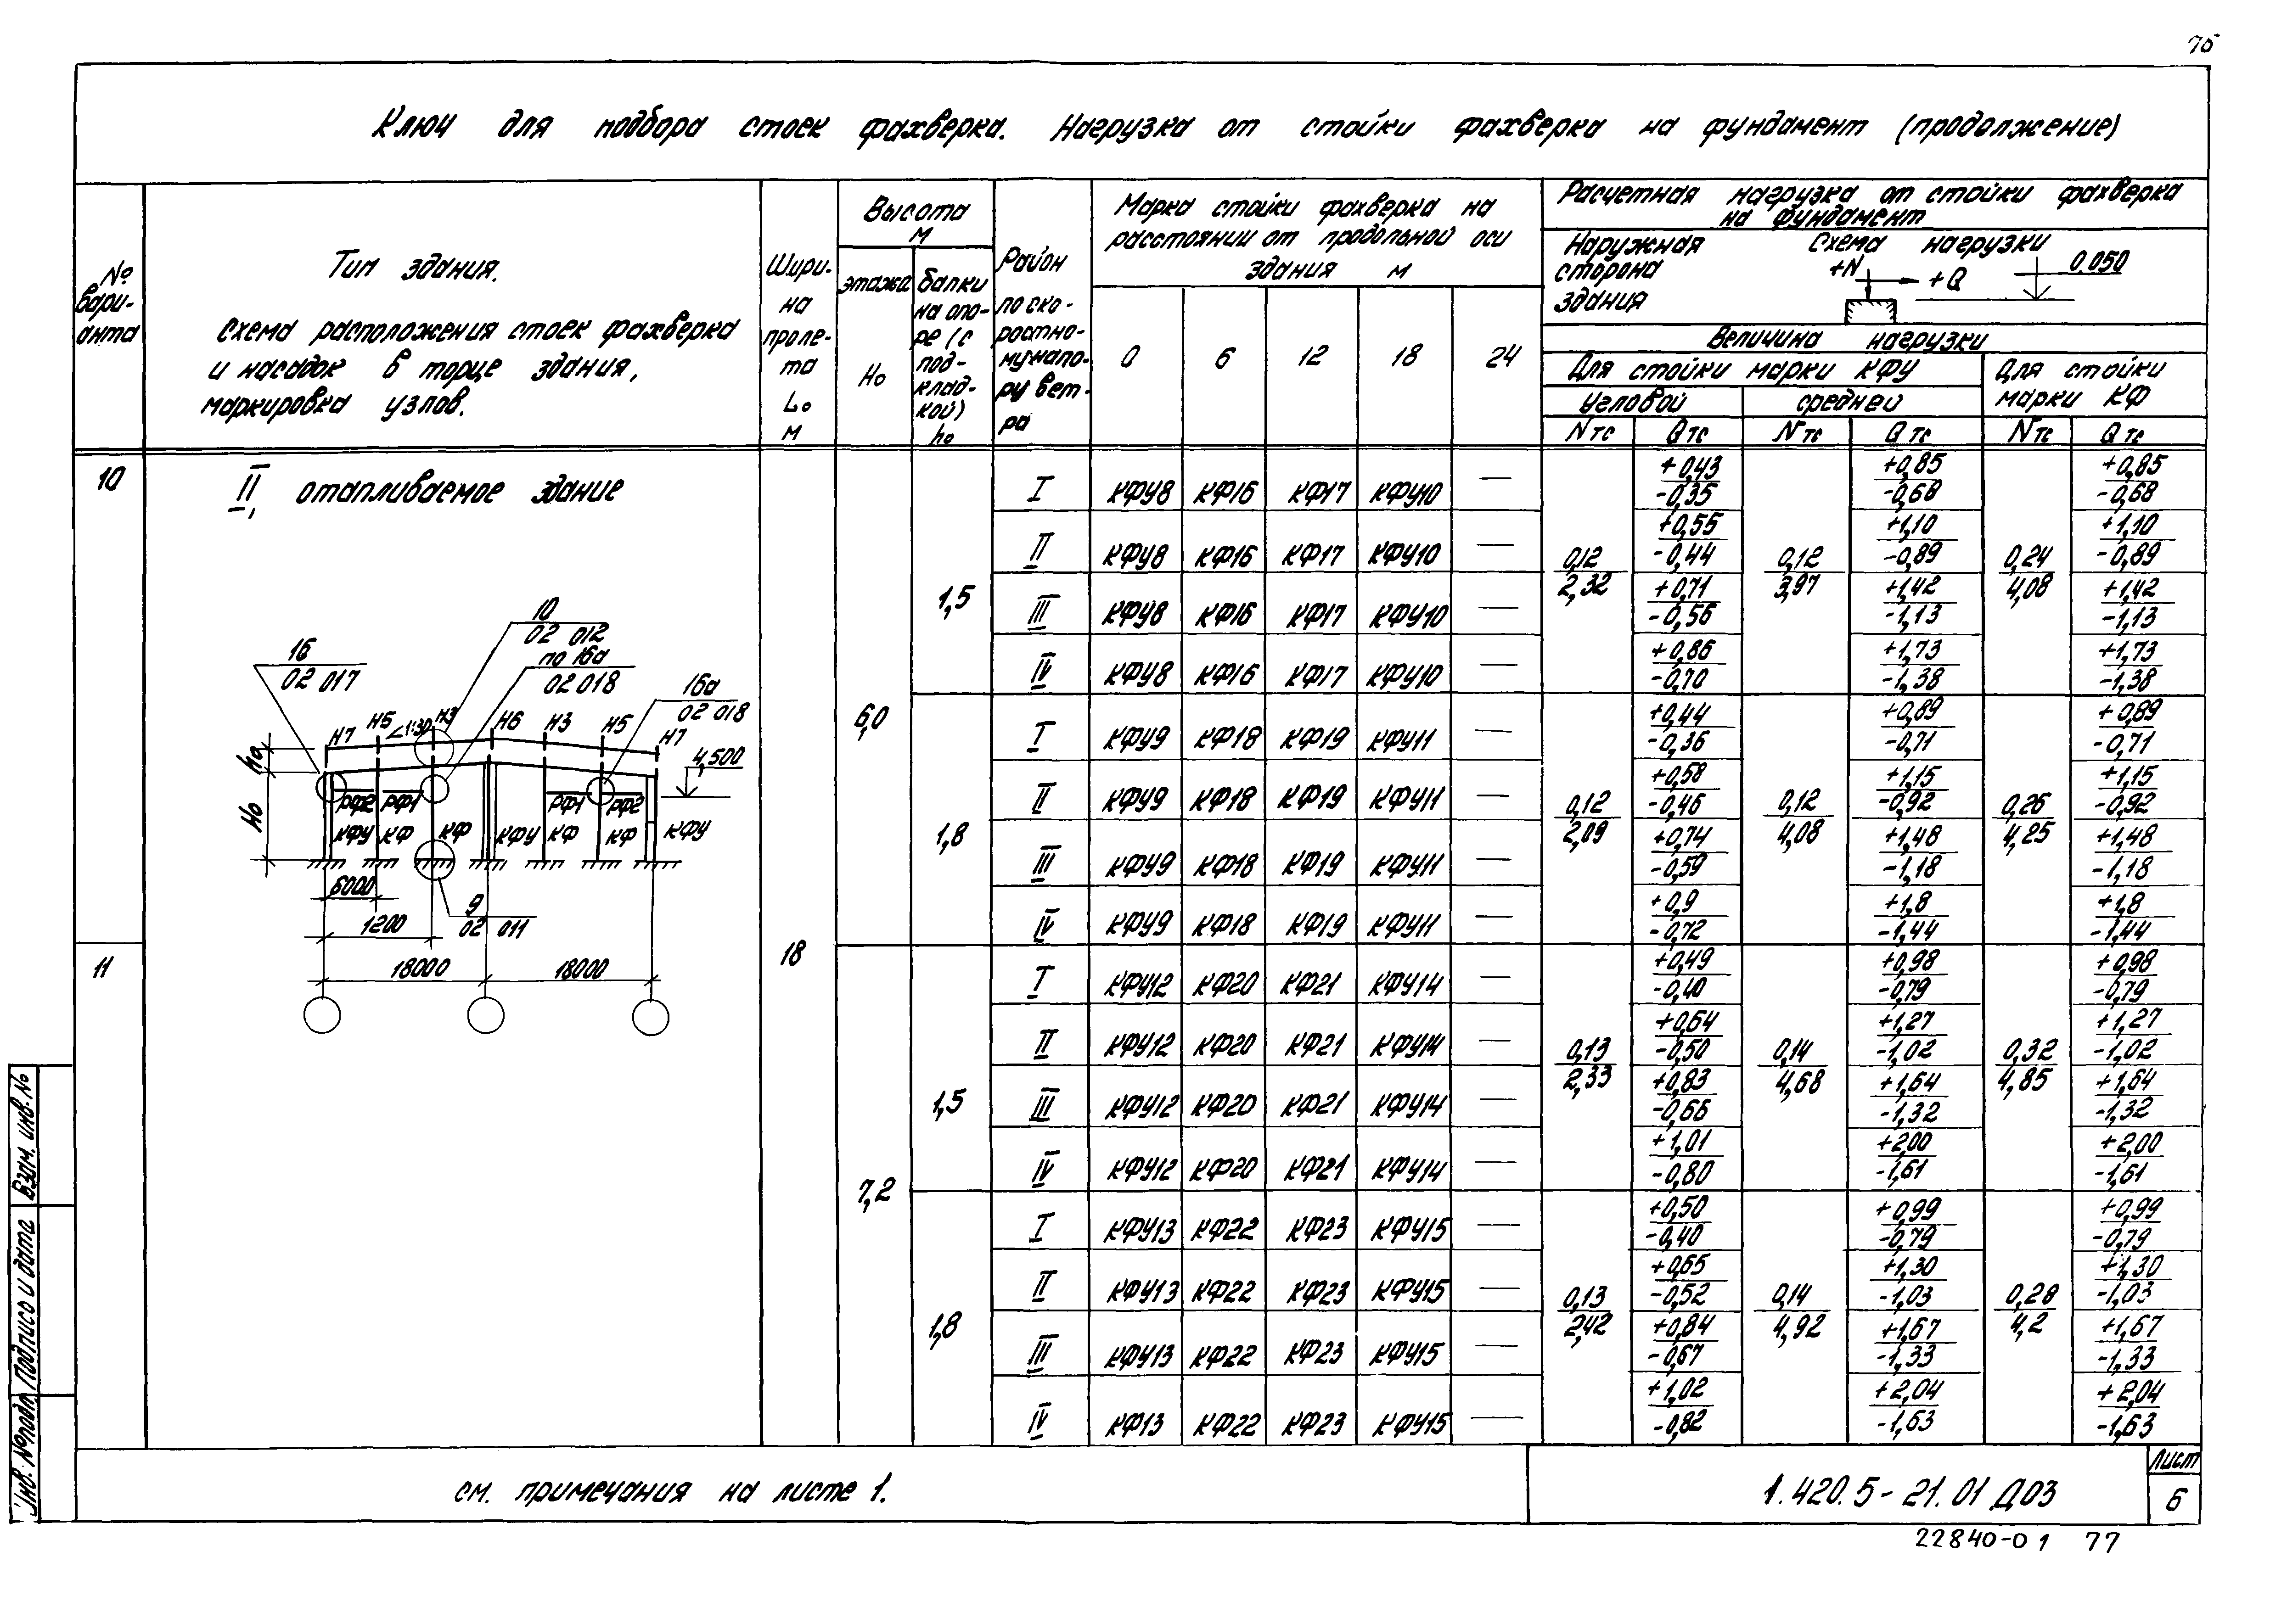 76
Ключ для подбора стоек фахверка. Нагрузка от стойки фахверка на фундамент (продолжение)
№ вари- анта
Тип здания.
Схема расположения стоек фахверка
и насадок в торце здания,
маркировка узлов.
Шири- на проле- та L₀ м
Высота м
этажа H₀
балки на опо- ре (с под- клад- кой) h₀
Район по ско- ростно- му напо- ру вет- ра
Марка стойки фахверка на
расстоянии от продольной оси
здания м
0 6 12 18 24
Расчетная нагрузка от стойки фахверка
на фундамент
Наружная сторона здания
Схема нагрузки
+N +Q 0.050
Величина нагрузки
Для стойки марки КФУ
Для стойки марки КФ
угловой средней
N тс Q тс N тс Q тс N тс Q тс
10
11
II, отапливаемое здание
10
02 012
16
02 017
по 16а
02 018
16а
02 018
Н7 Н5 <1:30 Н3 Н6 Н3 Н5 Н7
h₀
H₀
4,500
РФ2 РФ1 РФ1 РФ2
КФУ КФ КФ КФУ КФ КФ КФУ
6000
1200
9
02 011
18000 18000
18
6,0
1,5
0,12 2,32 0,12 3,97 0,24 4,08
I КФУ8 КФ16 КФ17 КФУ10 — +0,43 -0,35 +0,85 -0,68 +0,85 -0,68
II КФУ8 КФ16 КФ17 КФУ10 — +0,55 -0,44 +1,10 -0,89 +1,10 -0,89
III КФУ8 КФ16 КФ17 КФУ10 — +0,71 -0,56 +1,42 -1,13 +1,42 -1,13
IV КФУ8 КФ16 КФ17 КФУ10 — +0,86 -0,70 +1,73 -1,38 +1,73 -1,38
1,8
0,12 2,09 0,12 4,08 0,26 4,25
I КФУ9 КФ18 КФ19 КФУ11 — +0,44 -0,36 +0,89 -0,71 +0,89 -0,71
II КФУ9 КФ18 КФ19 КФУ11 — +0,58 -0,46 +1,15 -0,92 +1,15 -0,92
III КФУ9 КФ18 КФ19 КФУ11 — +0,74 -0,59 +1,48 -1,18 +1,48 -1,18
IV КФУ9 КФ18 КФ19 КФУ11 — +0,9 -0,72 +1,8 -1,44 +1,8 -1,44
7,2
1,5
0,13 2,33 0,14 4,68 0,32 4,85
I КФУ12 КФ20 КФ21 КФУ14 — +0,49 -0,40 +0,98 -0,79 +0,98 -0,79
II КФУ12 КФ20 КФ21 КФУ14 — +0,64 -0,50 +1,27 -1,02 +1,27 -1,02
III КФУ12 КФ20 КФ21 КФУ14 — +0,83 -0,66 +1,64 -1,32 +1,64 -1,32
IV КФУ12 КФ20 КФ21 КФУ14 — +1,01 -0,80 +2,00 -1,61 +2,00 -1,61
1,8
0,13 2,42 0,14 4,92 0,28 4,2
I КФУ13 КФ22 КФ23 КФУ15 — +0,50 -0,40 +0,99 -0,79 +0,99 -0,79
II КФУ13 КФ22 КФ23 КФУ15 — +0,65 -0,52 +1,30 -1,03 +1,30 -1,03
III КФУ13 КФ22 КФ23 КФУ15 — +0,84 -0,67 +1,67 -1,33 +1,67 -1,33
IV КФ13 КФ22 КФ23 КФУ15 — +1,02 -0,82 +2,04 -1,63 +2,04 -1,63
см. примечания на листе 1.
1.420.5-21.01 Д03
Лист
6
22840-01 77
Инв. № подл. Подпись и дата Взам. инв. №